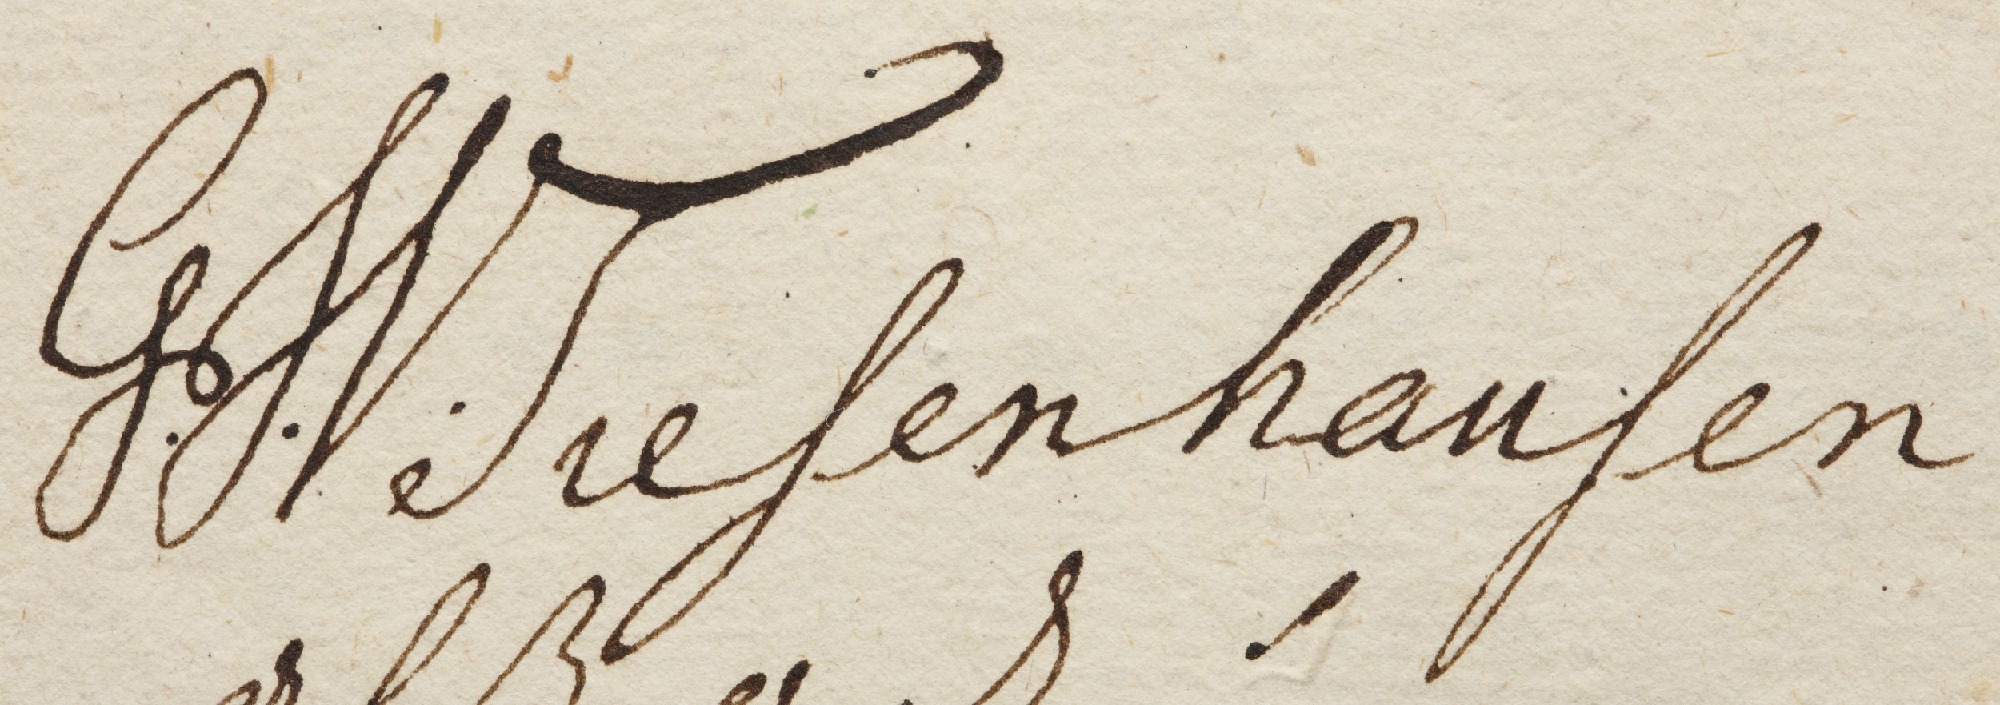 G. J. W. Tiesenhausen